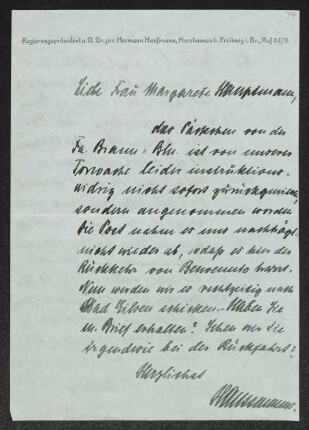 Regierungspräsident a. D. Dr. jur. Hermann Haußmann, Merzhausen b. Freiburg i. Br., Ruf 6478
Liebe Frau Margarete Hauptmann,
das Päckchen von der
Fa. Braun - Bln. ist von unserer
Torwache leider instruktions-
widrig nicht sofort zurückgewiesen,
sondern angenommen worden.
Die Post nahm es uns nachträgl.
nicht wieder ab, sodaß es hier der
Rückkehr von Benvenuto harrt.
Nun werden wir es rechtzeitig nach
Bad Eilsen schicken. - Haben Sie
m. Brief erhalten? Sehen wir Sie
irgendwie bei der Rückfahrt?
Herzlichst
Haussmann.